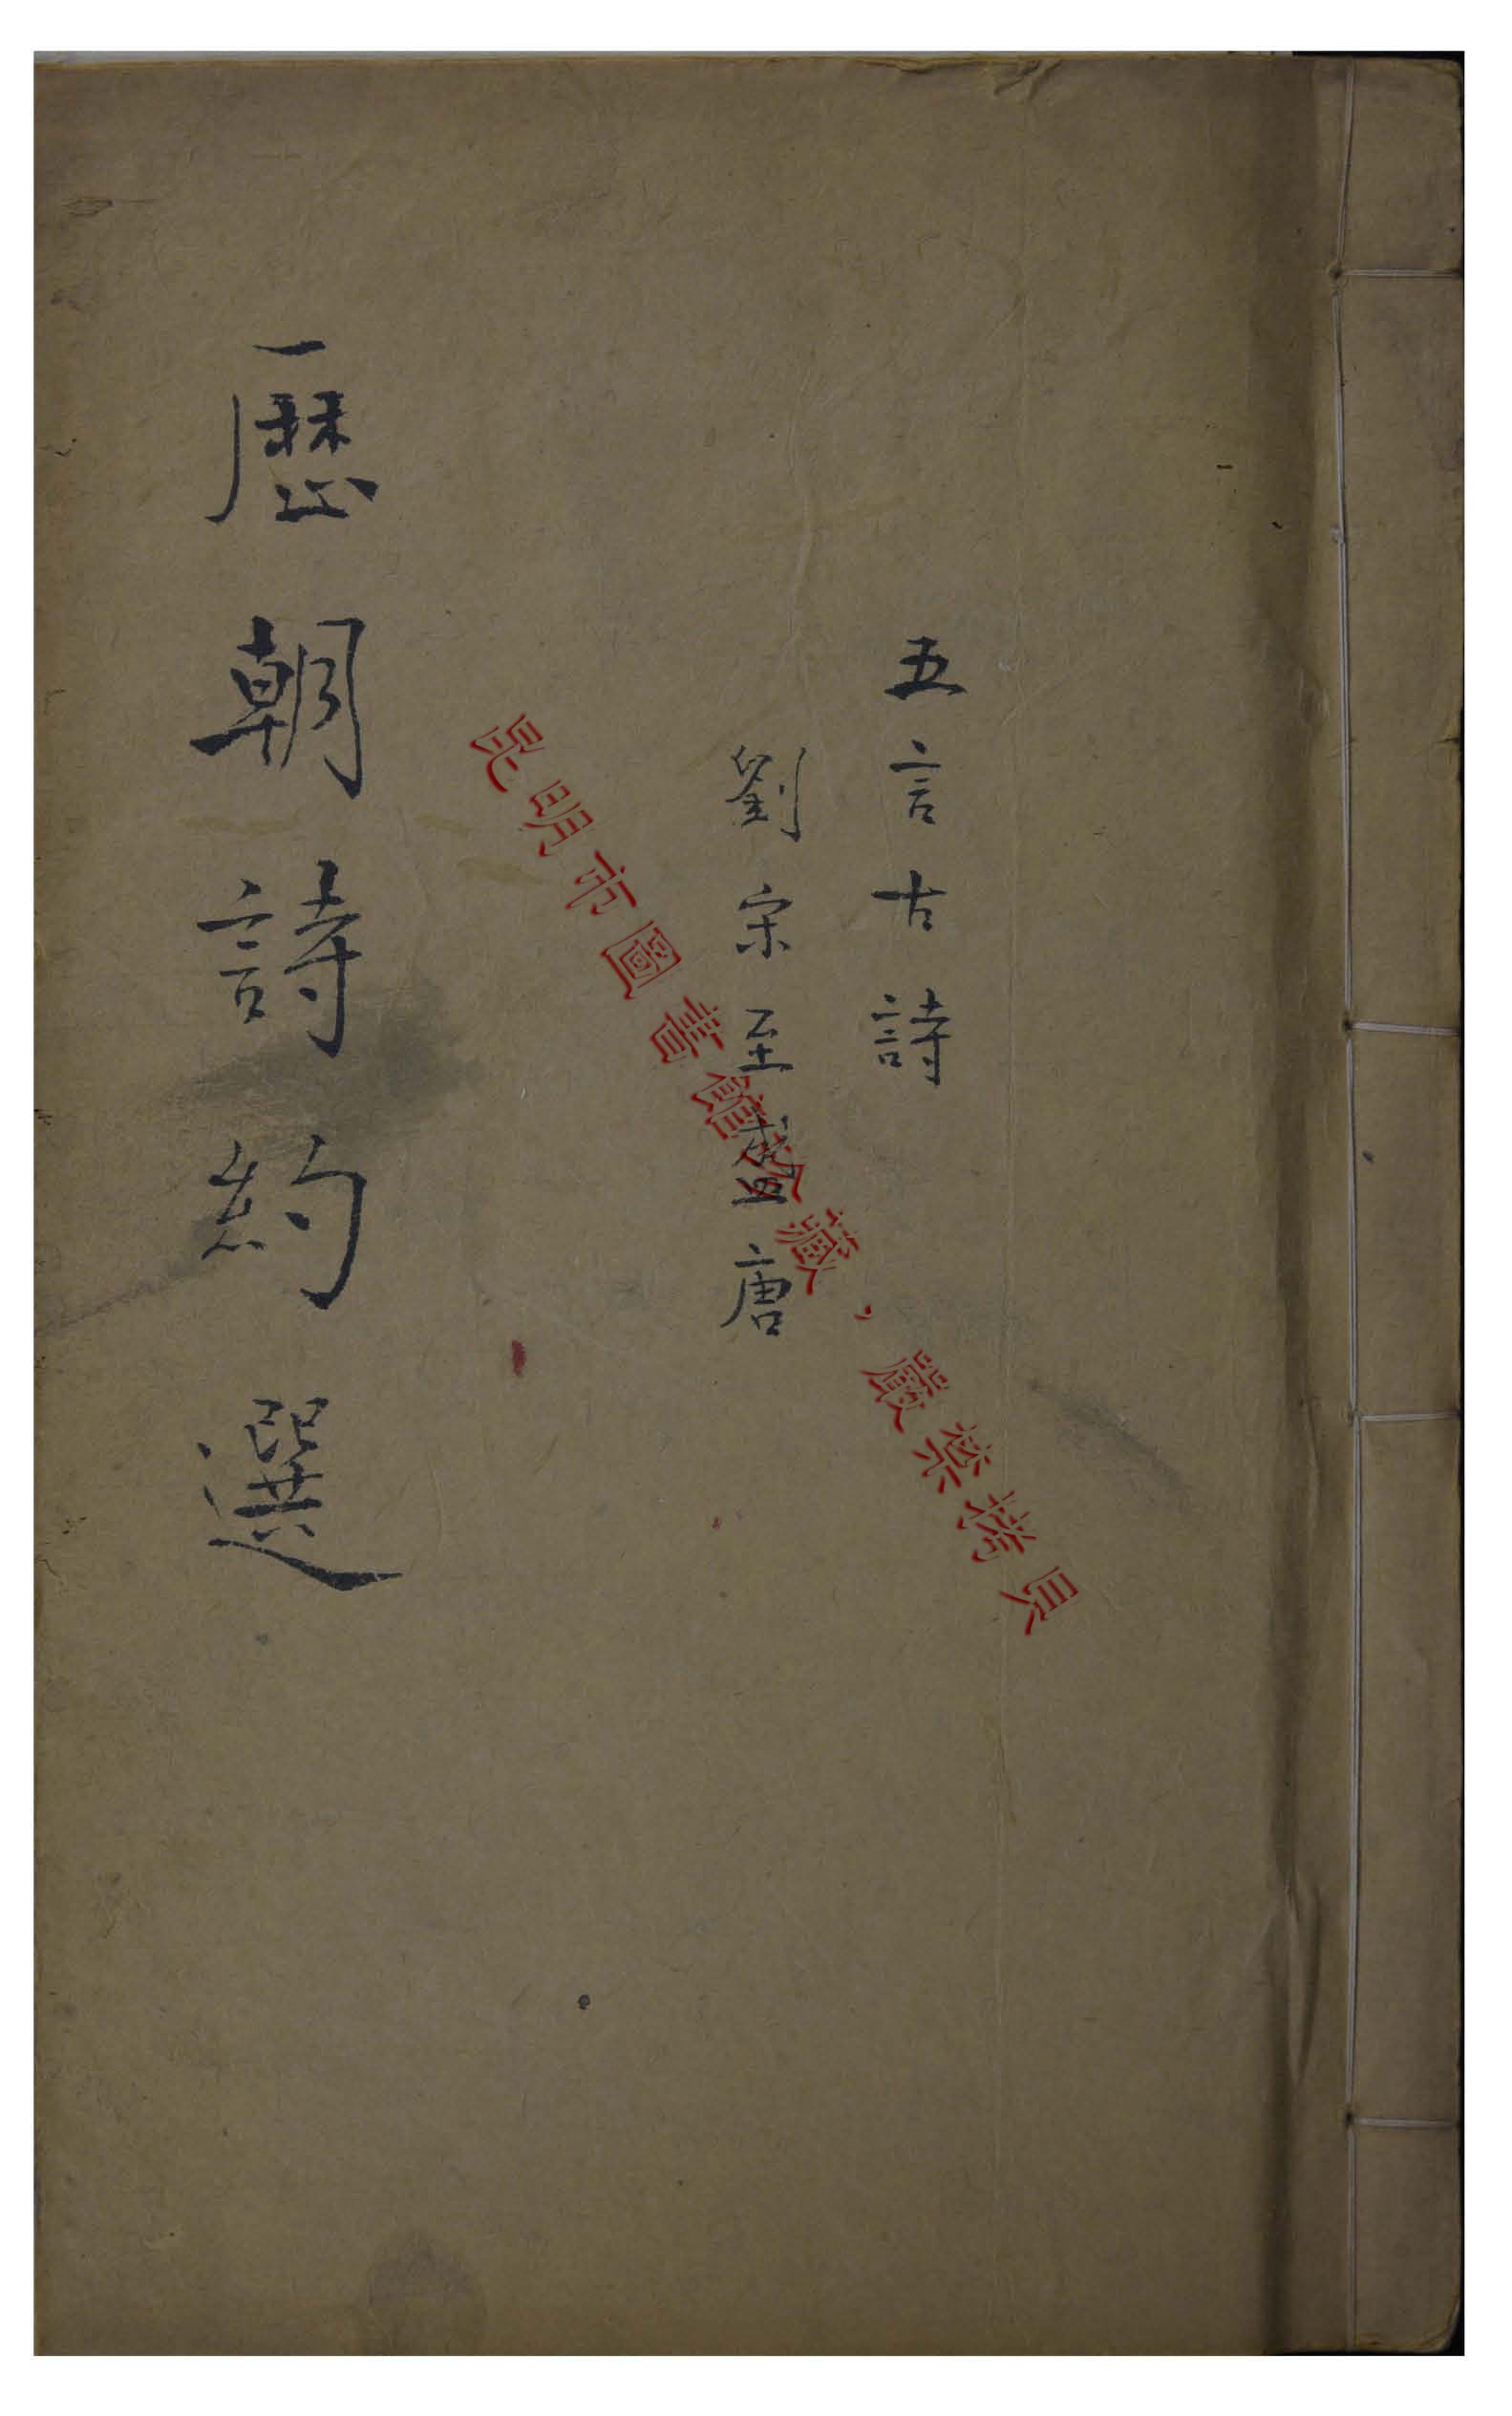 五言古詩
劉宋至盛唐
歷朝詩約選
昆明市圖書館珍藏，嚴禁拷貝